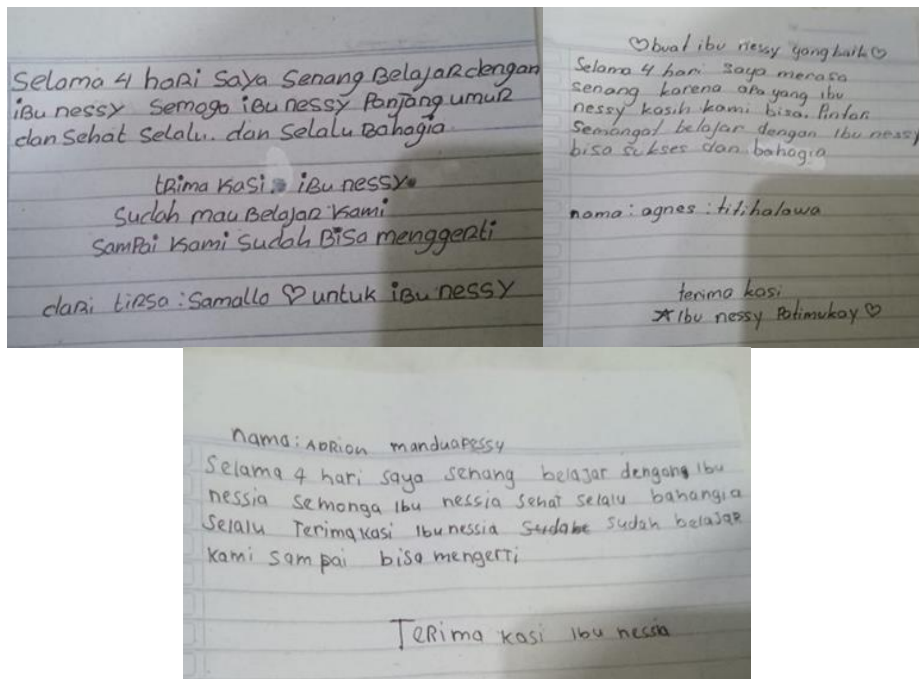 Selama 4 hari saya senang Belajar dengan
iBu nessy semoga iBu nessy Panjang umur
dan sehat selalu. dan selalu Bahagia.
trima kasi iBu nessy.
sudah mau Belajar kami
sampai kami sudah Bisa menggerti
dari tirsa : Samallo ♡ untuk iBu nessy
♡ buat ibu nessy yang baik ♡
Selama 4 hari saya merasa
senang karena apa yang ibu
nessy kasih kami bisa. Pintar
Semangat belajar dengan ibu nessy
bisa sukses dan bahagia
nama : agnes : titihalawa
terima kasi
☆ Ibu nessy Patimukay ♡
nama : ADRian manduapessy
Selama 4 hari saya senang belajar dengang Ibu
nessia semonga Ibu nessia sehat selalu bahangia
Selalu Terima kasi Ibu nessia sudah belajar
kami sampai bisa mengerti
Terima kasi Ibu nessia